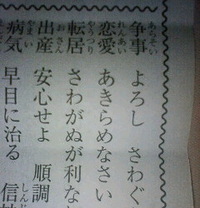 争事 よろし さわぐ
恋愛 あきらめなさい
転居 さわがぬが利な
出産 安心せよ 順調
病気 早目に治る 信